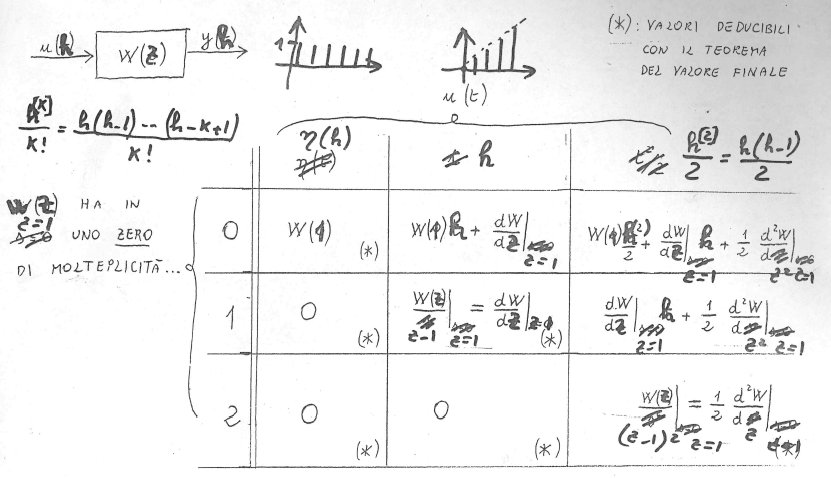 u(h) W(z) y(h)
1
u(t)
(*): VALORI DEDUCIBILI
CON IL TEOREMA
DEL VALORE FINALE
h^[K]/K! = h(h-1)--(h-K+1)/K!
η(h) h h^[2]/2 = h(h-1)/2
W(z) HA IN
z=1 UNO ZERO
DI MOLTEPLICITÀ...
0 W(1) (*) W(1)h + dW/dz|z=1 W(1)h^(2)/2 + dW/dz|z=1 h + 1/2 d²W/dz²|z=1
1 0 (*) W(z)/z-1|z=1 = dW/dz|z=1 (*) dW/dz|z=1 h + 1/2 d²W/dz²|z=1
2 0 (*) 0 (*) W(z)/(z-1)²|z=1 = 1/2 d²W/dz² (*)